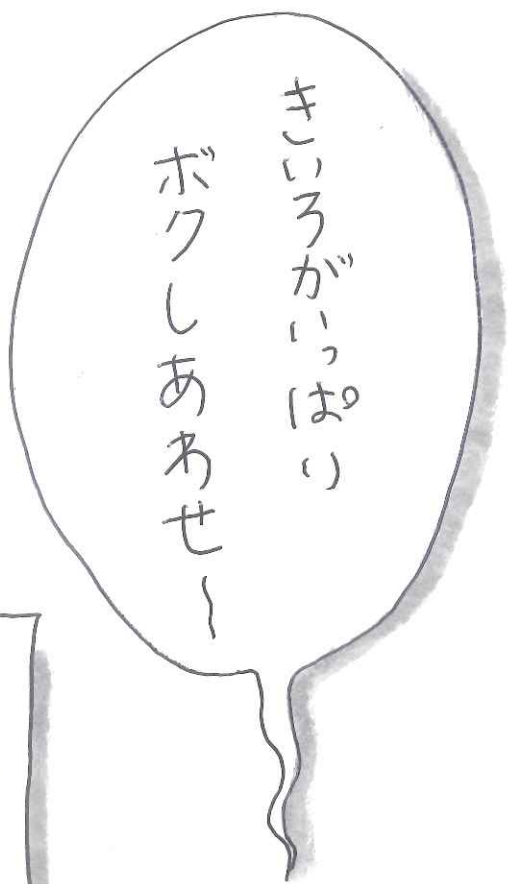 きいろがいっぱい
ボクしあわせ〜